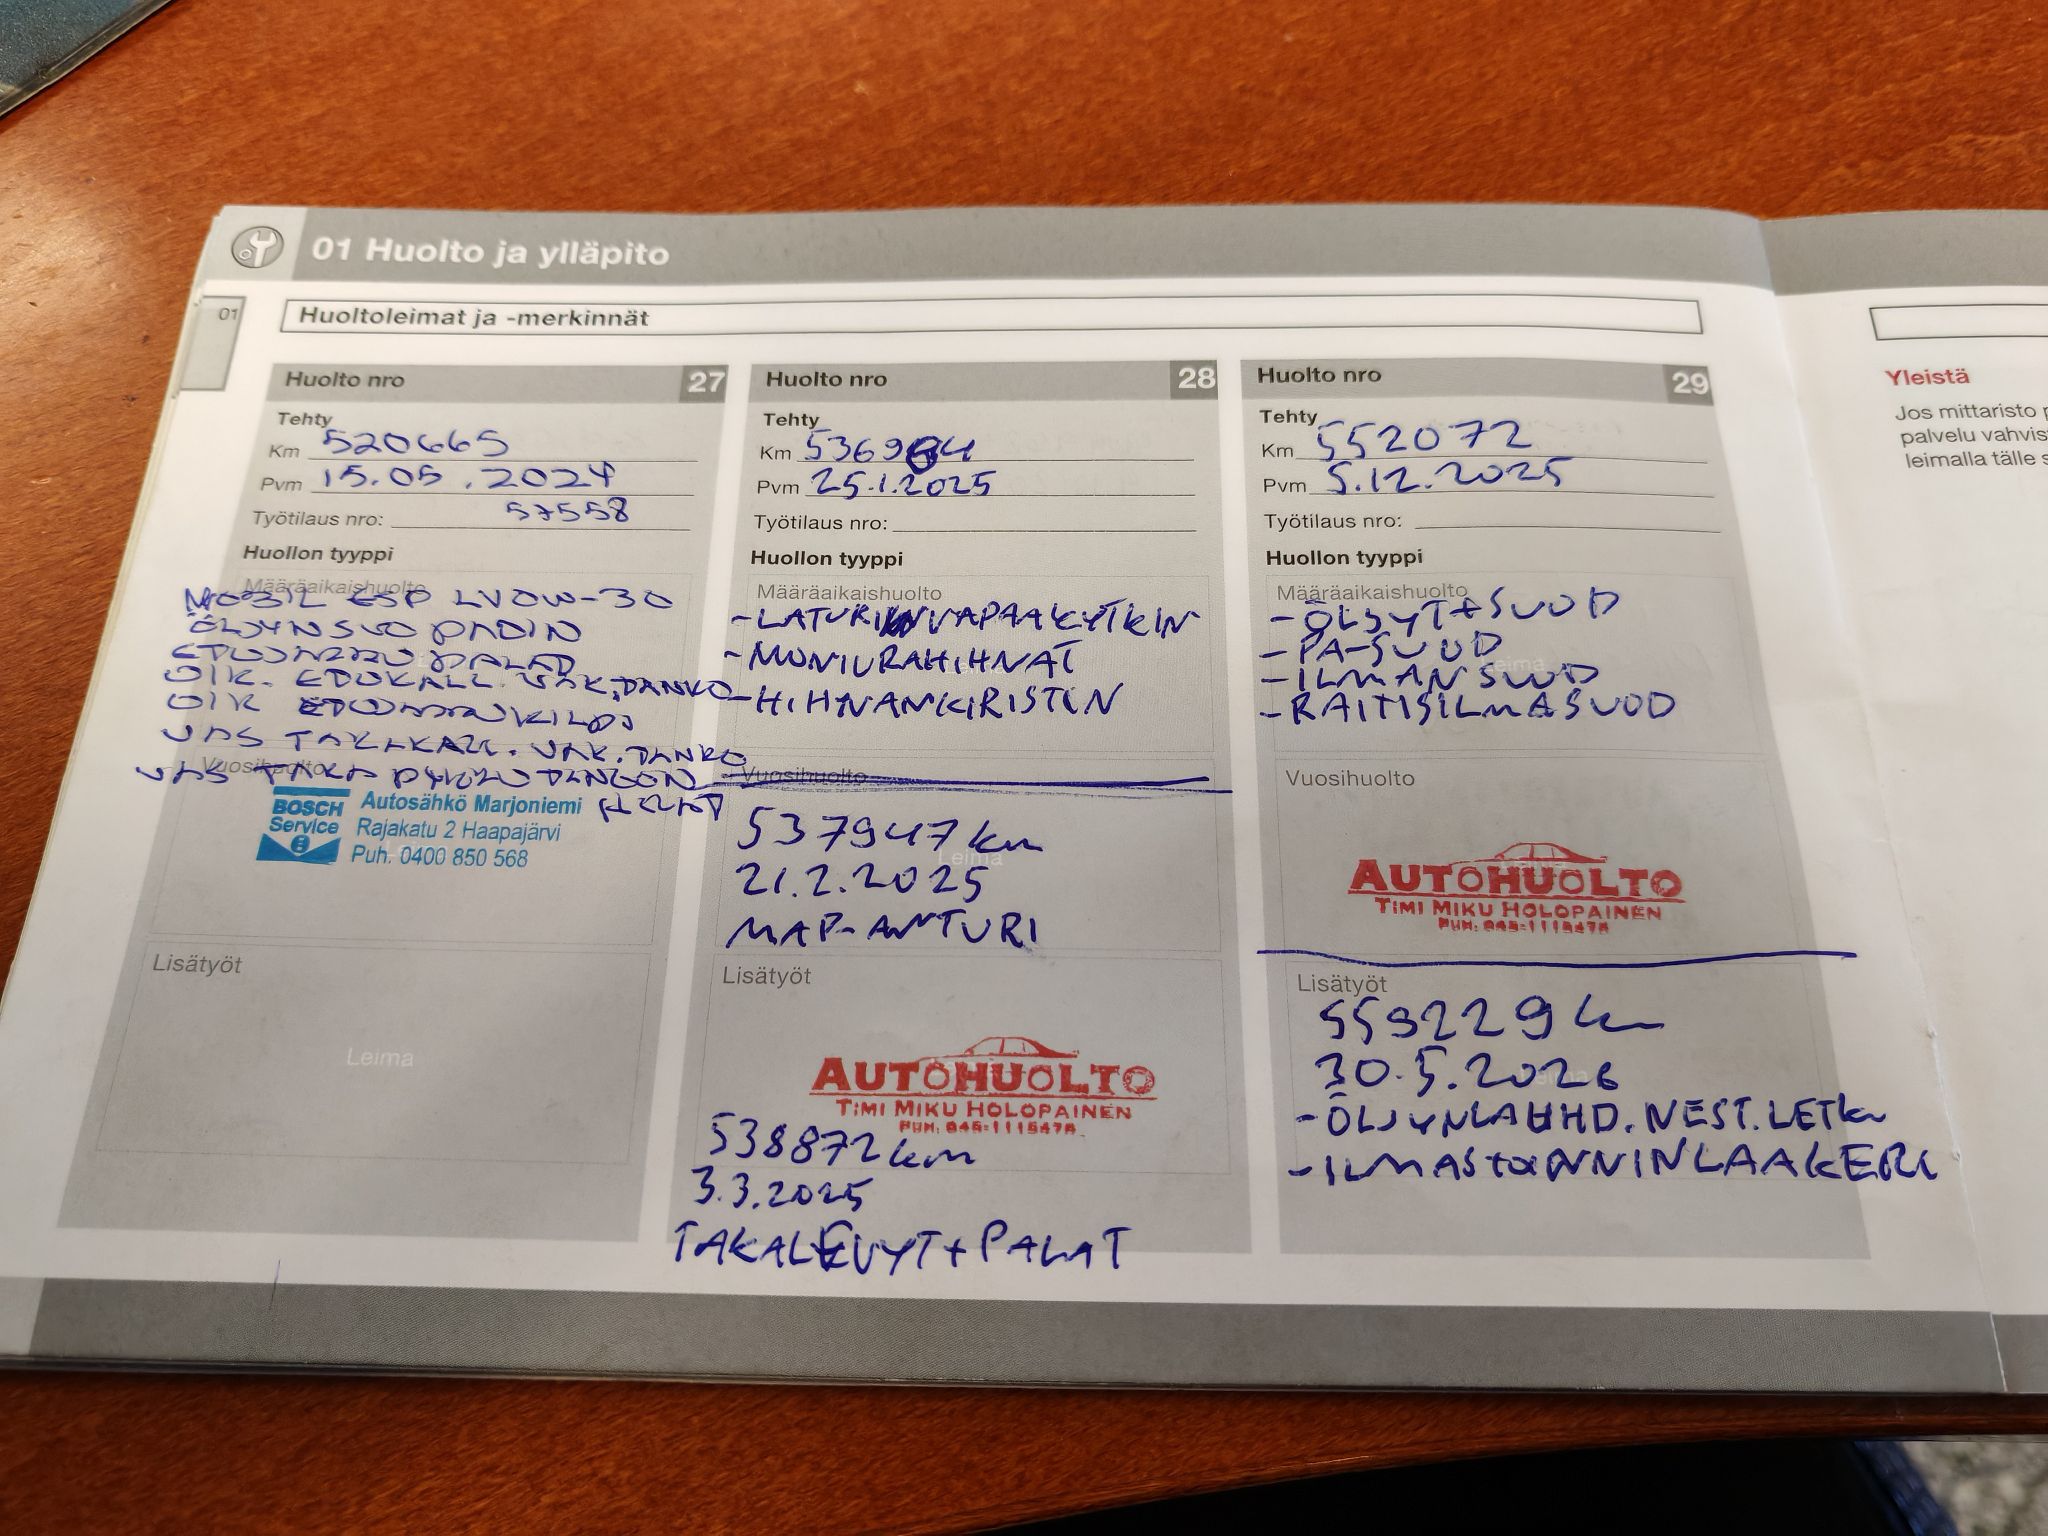 01 Huolto ja ylläpito
01
Huoltoleimat ja -merkinnät
Huolto nro 27
Tehty
Km 520665
Pvm 15.05.2024
Työtilaus nro: 57558
Huollon tyyppi
Määräaikaishuolto
MOBIL ESP LV0W-30
ÖLJYNSUODADIN
PALAD
OIK. ETUKALL. VAK.TANKO
OIK
VAS TAKAKALL. VAK.TANKO
Vuosihuolto
VAS TAKA
BOSCH
Service
Autosähkö Marjoniemi
Rajakatu 2 Haapajärvi
Puh. 0400 850 568
Lisätyöt
Leima
Huolto nro 28
Tehty
Km
Pvm 25.1.2025
Työtilaus nro:
Huollon tyyppi
Määräaikaishuolto
-LATURIN VAPAAKYTKIN
-MONIURAHIHNAT
-HIHNANKIRISTIN
Vuosihuolto
537947 km
Leima
21.2.2025
MAP-ANTURI
Lisätyöt
AUTOHUOLTO
TIMI MIKU HOLOPAINEN
538872 km
3.3.2025
TAKALEVYT + PALAT
Huolto nro 29
Tehty
Km 552072
Pvm 5.12.2025
Työtilaus nro:
Huollon tyyppi
Määräaikaishuolto
-ÖLJYT+SUOD
-PA-SUOD
Leima
-ILMANSUOD
-RAITISILMASUOD
Vuosihuolto
AUTOHUOLTO
TIMI MIKU HOLOPAINEN
Lisätyöt
559229 km
30.5.2026
Leima
-ÖLJYNLAUHD. NEST. LETKU
-ILMASTOINNINLAAKERI
Yleistä
Jos mittaristo
palvelu
leimalla tälle